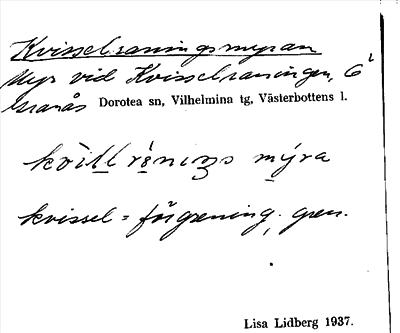 Kvisselraningsmyran
Myr vid Kvisselraningen, G
Granås Dorotea sn, Vilhelmina tg, Västerbottens l.
mýra
kvissel = förgrening, gren.
Lisa Lidberg 1937.